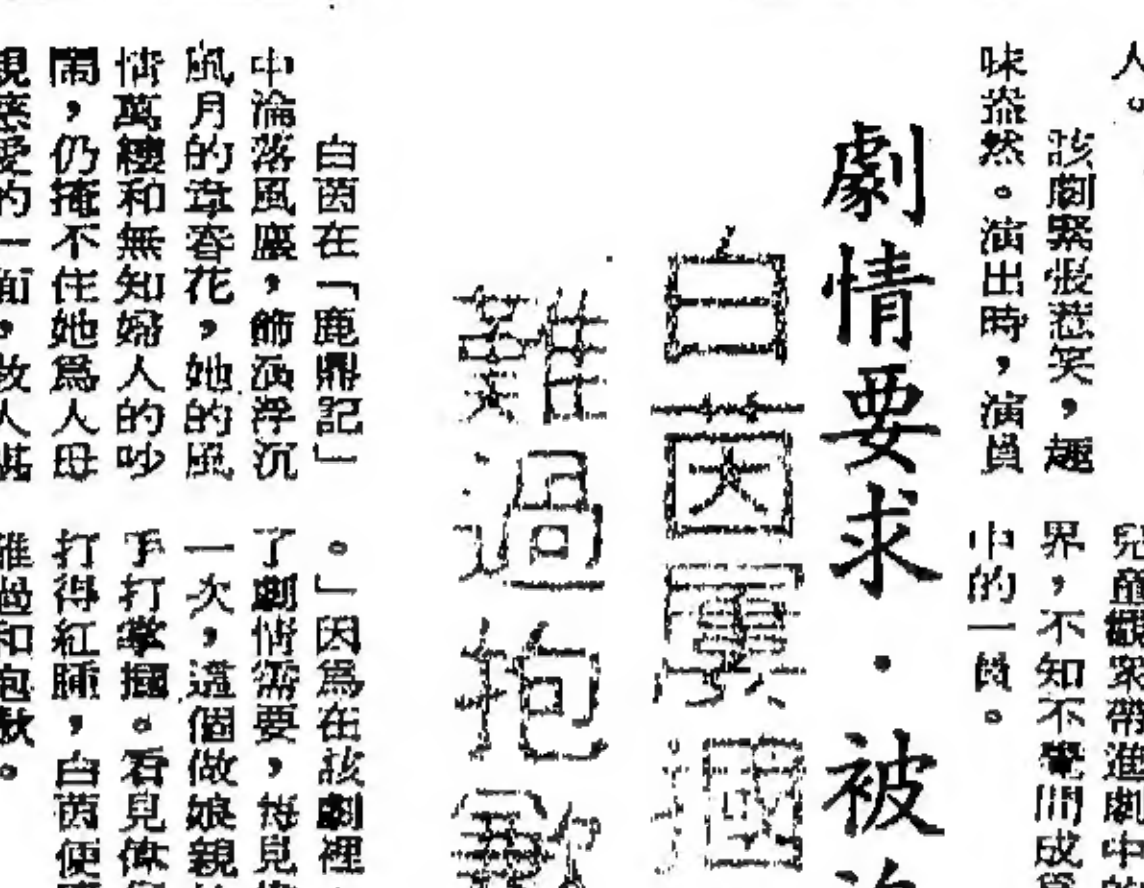 人。
該劇緊張惹笑,趣
味盎然。演出時,演員
兒童觀眾帶進劇中的
界,不知不覺間成
中的一員。
劇情要求·被
白茵屢摑
難過抱歉
白茵在「鹿鼎記」
中淪落風塵,飾演浮沉
風月的韋春花,她的風
情萬縷和無知婦人的吵
鬧,仍掩不住她爲人母
親慈愛的一面,教人
。」因爲在該劇裡
了劇情需要,每見
一次,這個做娘親
手打掌摑。看見偉
打得紅腫,白茵便
難過和抱歉。